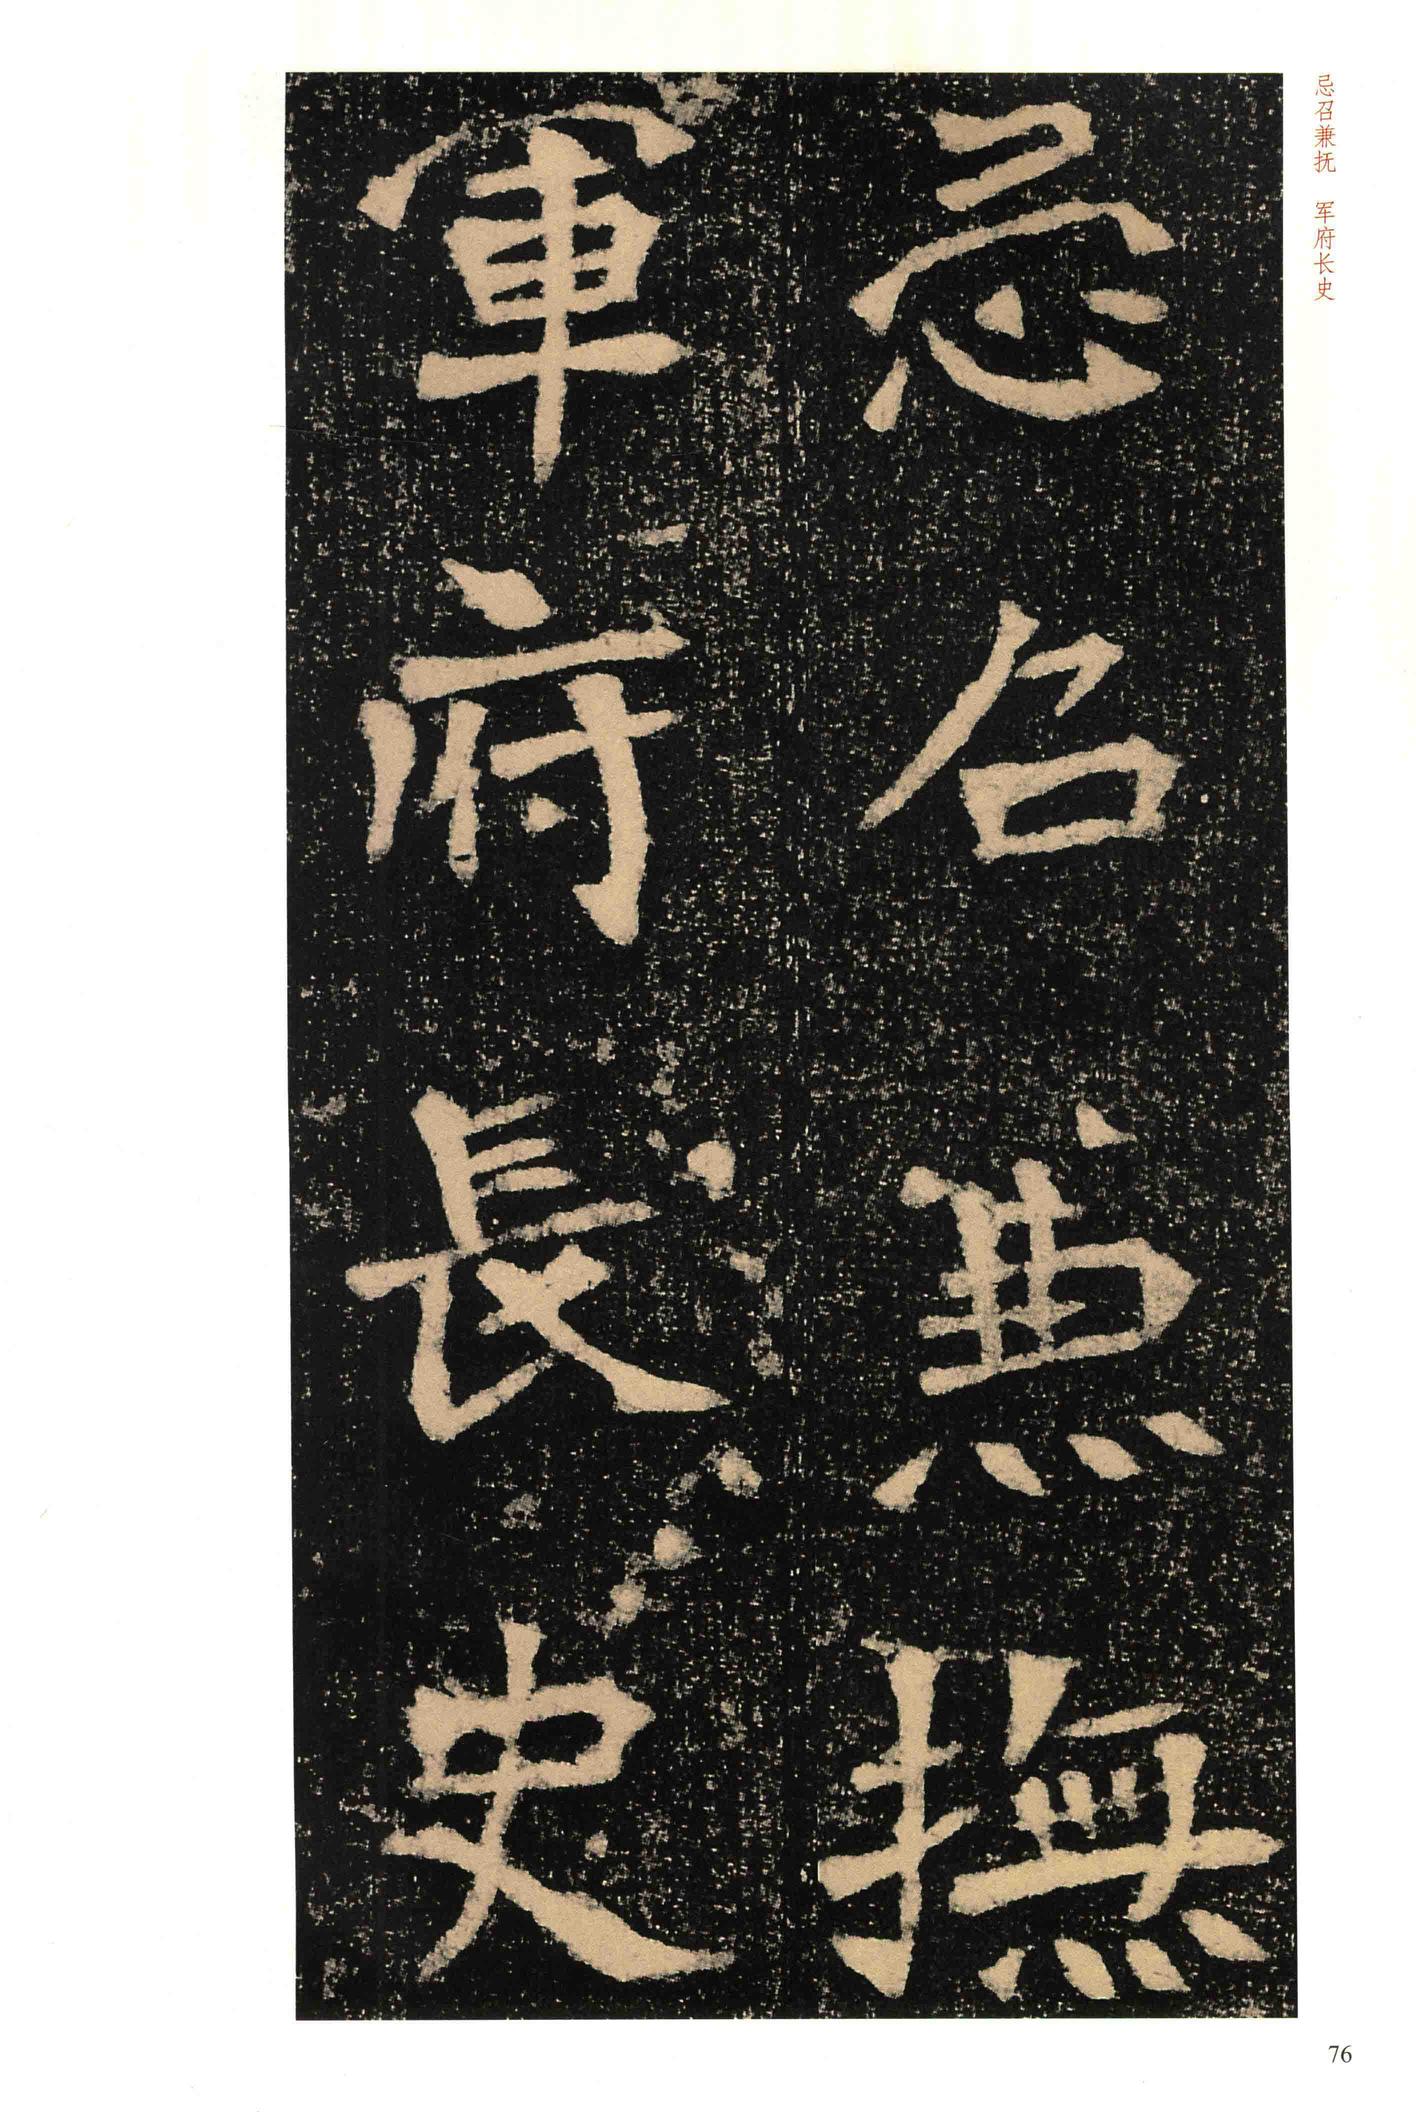 忌召兼撫
軍府長史
忌召兼抚　军府长史
76